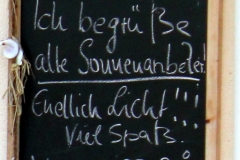 Ich begrüße
alle Sonnenanbeter
Endlich Licht!!!
Viel Spaß!